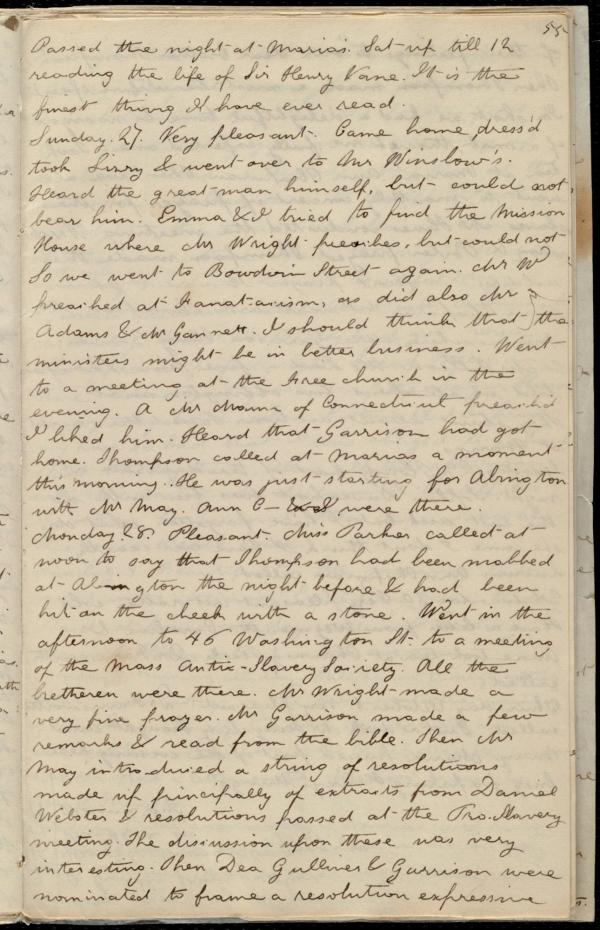 55
Passed the night at Maria's. Sat up till 12
reading the life of Sir Henry Vane. It is the
finest thing I have ever read.
Sunday. 27. Very pleasant. Came home, dress'd
took Lizzy & went over to Mr Winslow's.
Heard the great man himself, but could not
bear him. Emma & I tried to find the Mission
House where Mr Wright preaches, but could not
So we went to Bowdoin Street again. Mr W
preached at Fanaticism, as did also Mr
Adams & Mr Gannett. I should think that the
ministers might be in better business. Went
to a meeting at the Free church in the
evening. A Mr Mann of Connecticut preached
I liked him. Heard that Garrison had got
home. Thompson called at Maria's a moment
this morning. He was just starting for Abington
with Mr May. Ann C – & I were there.
Monday. 28. Pleasant. Miss Parker called at
noon to say that Thompson had been mobbed
at Abington the night before & had been
hit on the cheek with a stone. Went in the
afternoon to 46 Washington St. to a meeting
of the Mass Anti-Slavery Society. All the
bretheren were there. Mr Wright made a
very fine prayer. Mr Garrison made a few
remarks & read from the bible. Then Mr
May introduced a string of resolutions
made up principally of extracts from Daniel
Webster & resolutions passed at the Pro-Slavery
meeting. The discussion upon these was very
interesting. Then Dea Gulliver & Garrison were
nominated to frame a resolution expressive